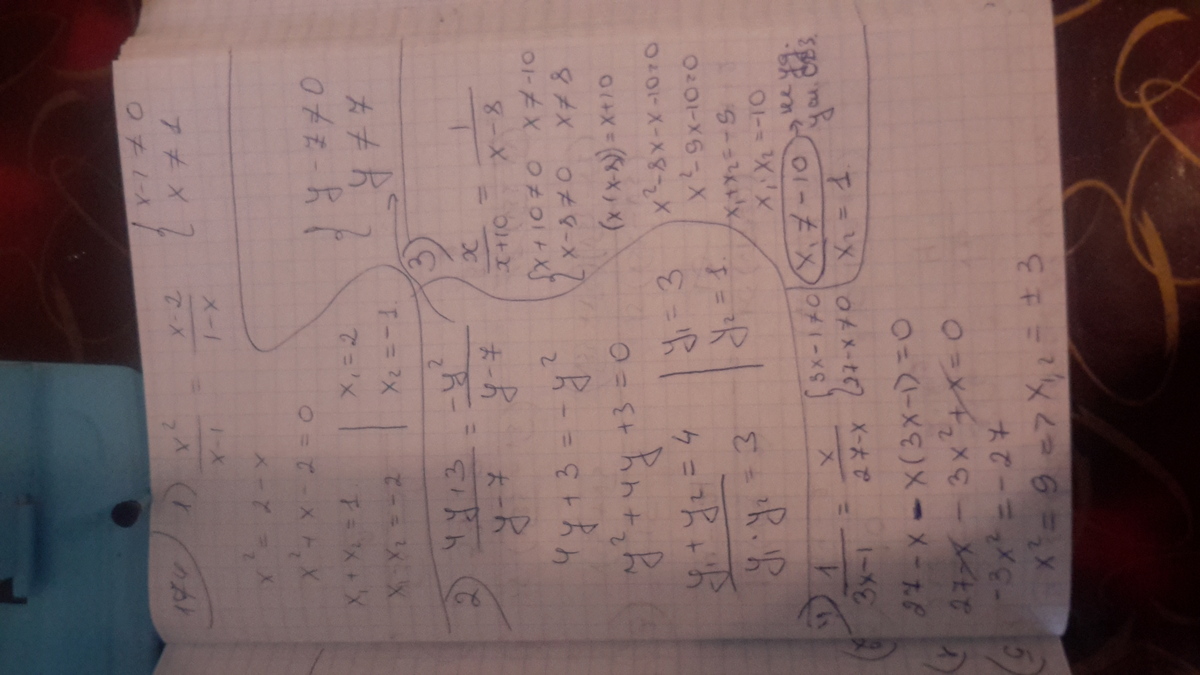 174
1) x²/(x-1) = (x-2)/(1-x)
{ x-1 ≠ 0
x ≠ 1
x² = 2 - x
x² + x - 2 = 0
x₁ + x₂ = 1. | x₁ = 2
x₁ · x₂ = -2 | x₂ = -1.
2) (4y+3)/(y-7) = -y²/(y-7)
{ y - 7 ≠ 0
y ≠ 7 →
4y + 3 = - y²
y² + 4y + 3 = 0
y₁ + y₂ = 4 | y₁ = 3
y₁ · y₂ = 3 | y₂ = 1.
3) x/(x+10) = 1/(x-8)
{ x + 10 ≠ 0 x ≠ -10
x - 8 ≠ 0 x ≠ 8
(x(x-8)) = x+10
x² - 8x - x - 10 = 0
x² - 9x - 10 = 0
x₁ + x₂ = -9.
x₁ x₂ = -10
x₁ ≠ -10 → не уд.
x₂ = 1. ОДЗ.
4) 1/(3x-1) = x/(27-x) { 3x - 1 ≠ 0
27 - x ≠ 0
27 - x - x(3x-1) = 0
27 - x - 3x² + x = 0
-3x² = -27
x² = 9 => x₁,₂ = ± 3